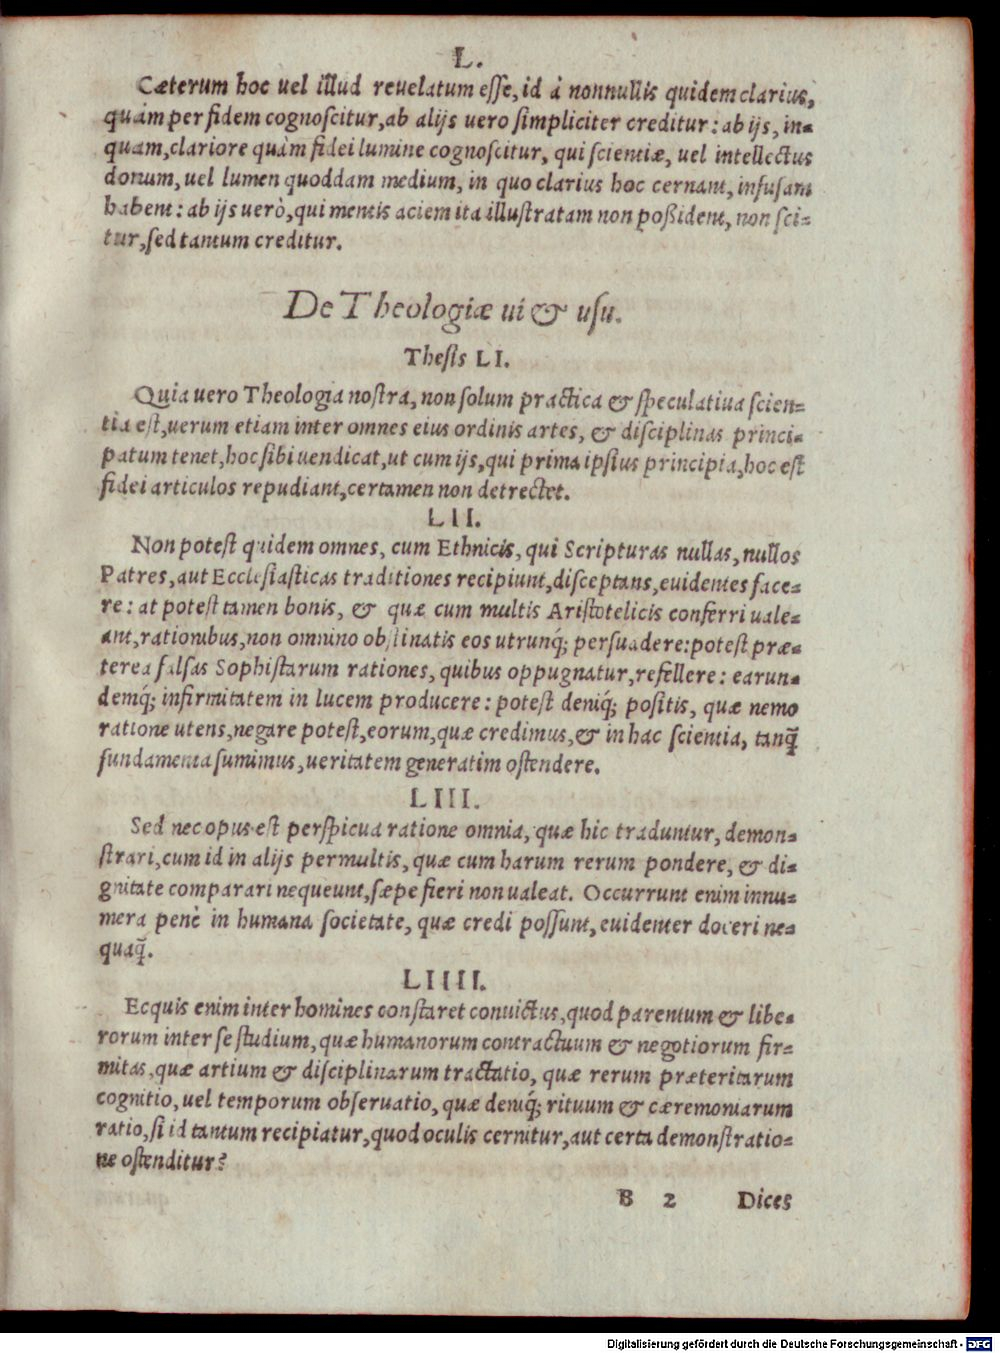 L.
Cæterum hoc uel illud reuelatum esse, id à nonnullis quidem clarius,
quàm per fidem cognoscitur, ab alijs uero simpliciter creditur: ab ijs, in-
quam, clariore quàm fidei lumine cognoscitur, qui scientiæ, uel intellectus
donum, uel lumen quoddam medium, in quo clarius hoc cernant, infusam
habent: ab ijs uerò, qui mentis aciem ita illustratam non poßident, non sci-
tur, sed tantum creditur.
De Theologiæ ui & usu.
Thesis LI.
Quia uero Theologia nostra, non solum practica & speculatiua scien-
tia est, uerum etiam inter omnes eius ordinis artes, & disciplinas princi-
patum tenet, hoc sibi uendicat, ut cum ijs, qui prima ipsius principia, hoc est
fidei articulos repudiant, certamen non detrectet.
LII.
Non potest quidem omnes, cum Ethnicis, qui Scripturas nullas, nullos
Patres, aut Ecclesiasticas traditiones recipiunt, disceptans, euidentes face-
re: at potest tamen bonis, & quæ cum multis Aristotelicis conferri uale-
ant, rationibus, non omnino obstinatis eos utrunq́; persuadere: potest præ-
terea falsas Sophistarum rationes, quibus oppugnatur, refellere: earun-
demq́; infirmitatem in lucem producere: potest deniq́; positis, quæ nemo
ratione utens, negare potest, eorum, quæ credimus, & in hac scientia, tanq̃
fundamenta sumimus, ueritatem generatim ostendere.
LIII.
Sed nec opus est perspicua ratione omnia, quæ hic traduntur, demon-
strari, cum id in alijs permultis, quæ cum harum rerum pondere, & di-
gnitate comparari nequeunt, sæpe fieri non ualeat. Occurrunt enim innu-
mera penè in humana societate, quæ credi possunt, euidenter doceri ne-
quaq̃.
LIIII.
Ecquis enim inter homines constaret conuictus, quod parentum & libe-
rorum inter se studium, quæ humanorum contractuum & negotiorum fir-
mitas, quæ artium & disciplinarum tractatio, quæ rerum præteritarum
cognitio, uel temporum obseruatio, quæ deniq́; rituum & cæremoniarum
ratio, si id tantum recipiatur, quod oculis cernitur, aut certa demonstratio-
ne ostenditur?
B 2 Dices
Digitalisierung gefördert durch die Deutsche Forschungsgemeinschaft - DFG